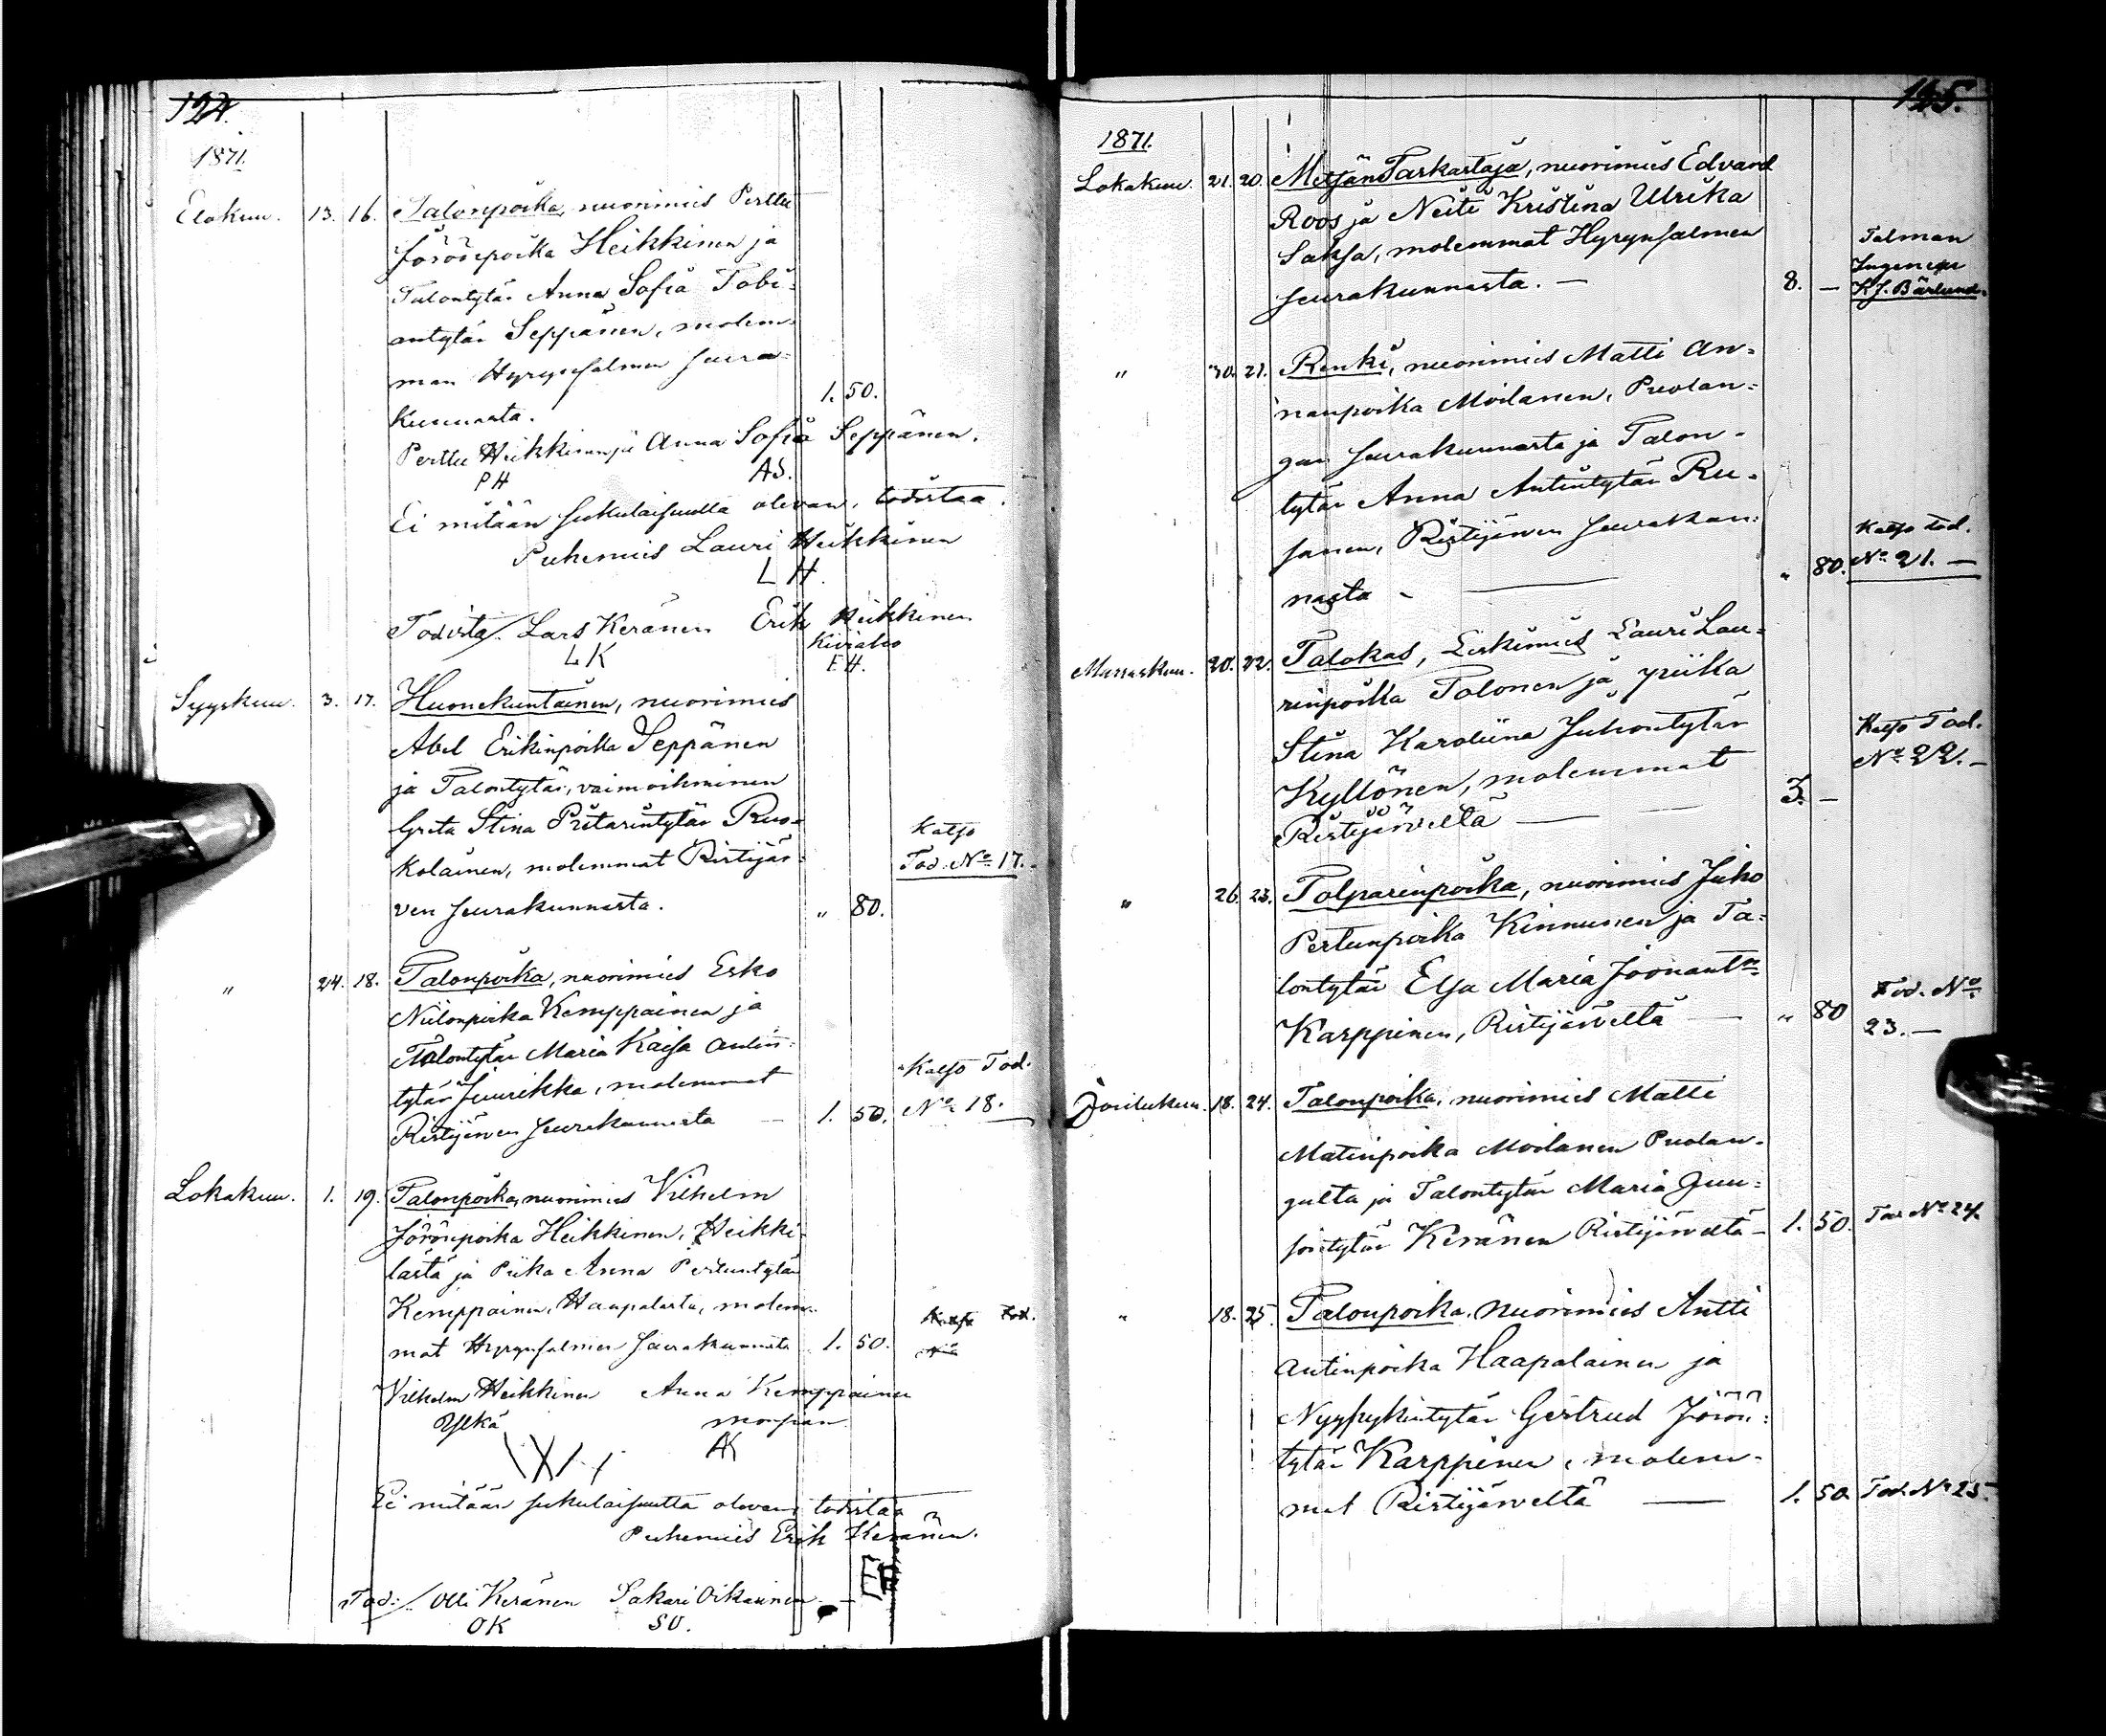 124.
1871.
Elokuu. 13. 16. Talonpoika, nuorimies Perttu
Jöröpoika Heikkinen ja
Talontytär Anna Sofia Tobi-
antytär Seppänen, molem-
man Hyrynsalmen seura-
kunnasta. 1. 50.
Perttu Heikkinen ja Anna Sofia Seppänen.
PH AS.
Ei mitään sukulaisuutta olevan, todistaa.
Puhemies Lauri Heikkinen
L H.
Todista/. Lars Keränen Erik Heikkinen
Kiviaho
LK E.H.
Syyskuu. 3. 17. Huonekuntainen, nuorimies
Abel Erikinpoika Seppänen
ja Talontytär, vaimoihminen
Greta Stina Pritarintytär Ruo-
kolainen, molemmat Ristijär-
ven seurakunnasta. " 80.
Katso
Tod. No 17.
" 24. 18. Talonpoika, nuorimies Esko
Niilonpoika Kemppainen ja
Talontytär Maria Kaisa Antin-
tytär Juurikka, molemmat
Ristijärven seurakunnasta — 1. 50.
Katso Tod.
No 18.
Lokakuu. 1. 19. Talonpoika, nuorimies Vilhelm
Jöröpoika Heikkinen, Heikki-
lästä ja Piika Anna Pertuntytär
Kemppainen, Haapalasta, molem-
mat Hyrynsalmen seurakunnasta 1. 50.
Katso Tod.
No
Vilhelm Heikkinen Anna Kemppainen
Ylkä morsian
AK
Ei mitään sukulaisuutta olevan, todistaa
Puhemies Erik Keränen.
EK
Tod:/. Olli Keränen Sakari Oikarinen
OK SO.
125.
1871.
Lokakuu. 21. 20. MetsänTarkastaja, nuorimies Edvard
Roos ja Neiti Kristina Ulrika
Saksa, molemmat Hyrynsalmen
seurakunnasta. — 8. —
Talman
Ingeneur
K J. Bärlund.
" 30. 21. Renki, nuorimies Matti An-
nanpoika Moilanen, Puolan-
gan seurakunnasta ja Talon-
tytär Anna Antintytär Ru-
sanen, Ristijärven seurakun-
nasta — " 80.
Katso tod.
No 21. —
Marraskuu. 20. 22. Talokas, Leskimies Lauri Lau-
rinpoika Tolonen ja piika
Stina Karoliina Juhontytär
Kyllönen, molemmat
Ristijärveltä — 3. —
Katso Tod.
No 22. —
" 26. 23. Tolparinpoika, nuorimies Juho
Pertunpoika Kinnunen ja Ta-
lontytär Elsa Maria Joonantr
Karppinen, Ristijärveltä — " 80
Tod. No
23. —
Joulukuu. 18. 24. Talonpoika, nuorimies Matti
Matinpoika Moilanen Puolan-
galta ja Talontytär Maria Juu-
sontytär Keränen Ristijärveltä — 1. 50. Tod No 24.
" 18. 25. Talonpoika, nuorimies Antti
Antinpoika Haapalainen ja
Nyyssykintytär Gertrud Jörön-
tytär Karppinen, molem-
mat Ristijärveltä — 1. 50. Tod. No 25.